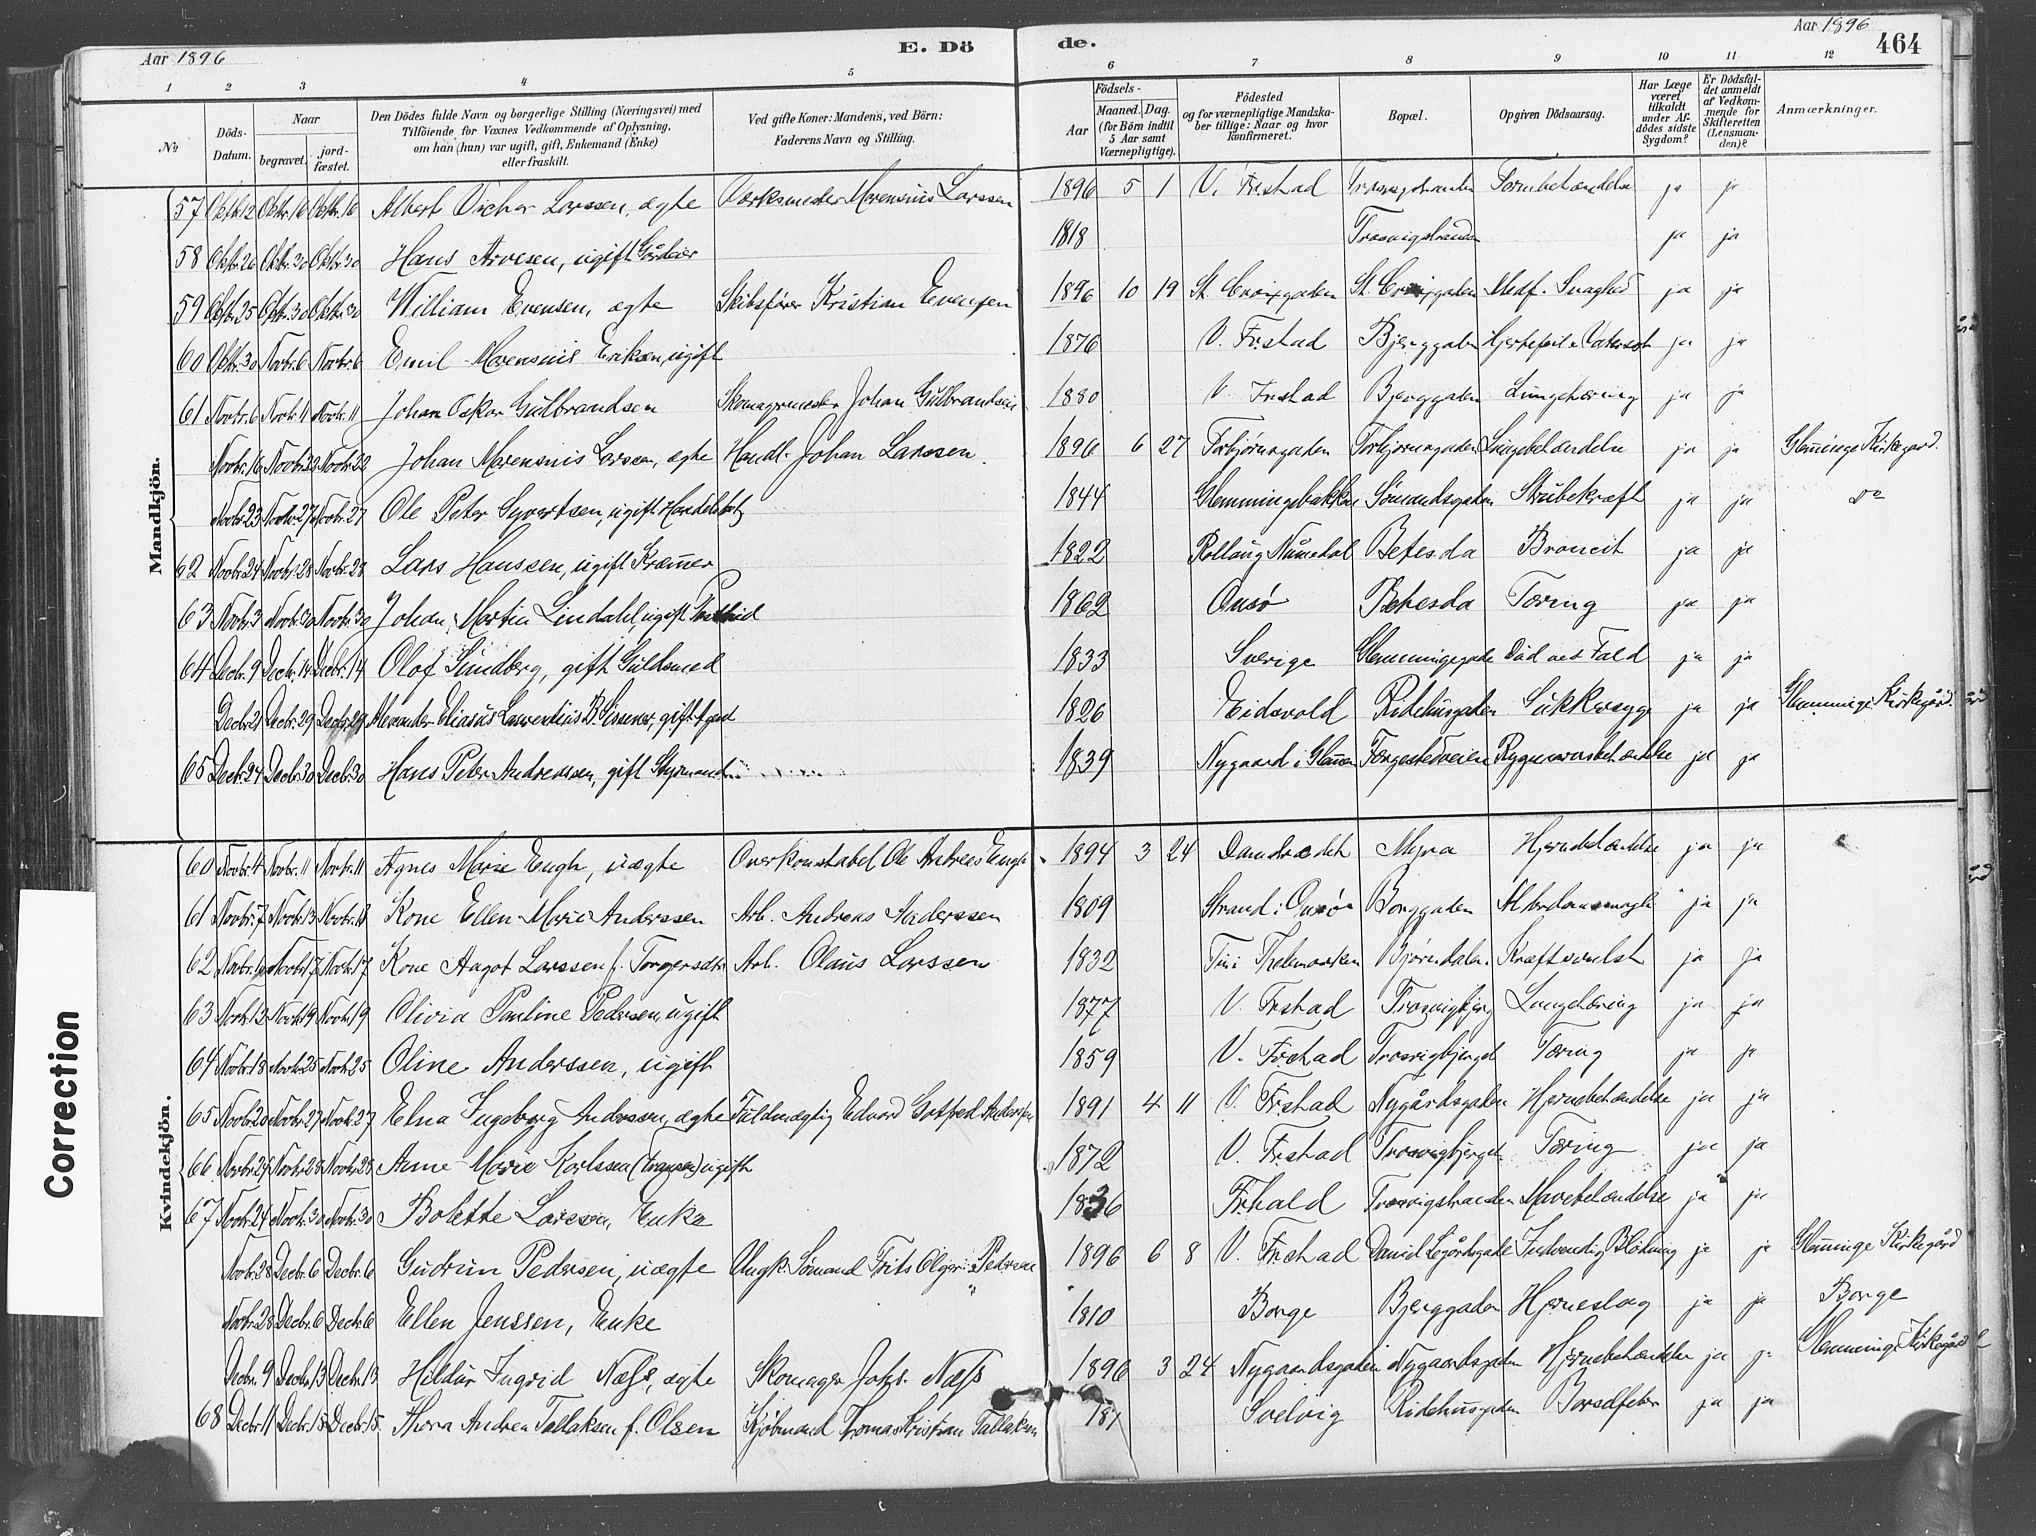 Aar 1896 E. Döde. Aar 1896 464
1 2 3 4 5 6 7 8 9 10 11 12
No Döds-Datum. Naar begravet. jordfæstet. Den Dödes fulde Navn og borgerlige Stilling (Næringsvei) med Tilføiende for Voxnes Vedkommende af Oplysning, om han (hun) var ugift, gift, Enkemand (Enke) eller fraskilt. Ved gifte Koner: Mandens, ved Börn: Faderens Navn og Stilling. Födsels- Aar Maaned. Dag. (for Börn indtil 5 Aar samt Værnepligtige). Födested og for værnepligtige Mandskaber tillige: Naar og hvor konfirmeret. Bopæl. Opgiven Dödsaarsag. Har Læge været tilkaldt under Afdödes sidste Sygdom? Er Dödsfaldet anmeldt af Vedkommende for Skifteretten (Lensmanden)? Anmærkninger.
Mandkjön.
57 Oktbr. 12 Oktbr. 16 Oktbr. 16 Albert Victor Larssen, ægte Værksmester Morensius Larssen 1896 5 1 V. Fr.stad Trosvigstranden Tarmbetændelse ja ja
58 Oktbr. 26 Oktbr. 30 Oktbr. 30 Hans Arvesen, ugift 1818 Trosvigstranden ja ja
59 Oktbr. 25 Oktbr. 30 Oktbr. 30 William Evensen, ægte Skibsfører Kristian Evensen 1896 10 19 St. Croixgaden St. Croixgaden Medf. Svaghed ja ja
60 Oktbr. 30 Novbr. 6 Novbr. 6 Emil Morensius Eriksen, ugift 1876 V. Fr.stad Bjerggaden Hjertefeil Vatersot ja ja
61 Novbr. 6 Novbr. 11 Novbr. 11 Johan Oskar Gulbrandsen Skomagermester Johan Gulbrandsen 1880 V. Fr.stad Bjerggaden Lungetæring ja ja
Novbr. 16 Novbr. 22 Novbr. 22 Johan Morensius Larsen, ægte Handl. Johan Larssen. 1896 6 27 Torbjørnsgaden Torbjørnsgaden Lungebetændelse ja ja Glemminge Kirkegård.
Novbr. 23 Novbr. 27 Novbr. 27 Ole Peter Syvertsen, ugift 1844 Glemmingebakken Sömandsgaden Strubekræft ja ja do
62 Novbr. 24 Novbr. 28 Novbr. 28 Lars Hanssen, ugift Kræmmer 1822 Rollaug Numedal Betesda Broncit ja ja
63 Novbr. 3 Novbr. 30 Novbr. 30 Johan Martin Lindahl, ugift 1862 Onsö Betesda Tæring ja ja
64 Decbr. 9 Decbr. 14 Decbr. 14 Olof Sundberg, gift Guldsmed 1833 Sverige Glemmingegade Död ved Fald ja ja
Decbr. 21 Decbr. 29 Decbr. 29 Alexander Eliasus Laurentius B. Sissener, gift Agent 1826 Eidsvold Ridehusgaden Sukkersyge ja ja Glemminge Kirkegård.
65 Decbr. 24 Decbr. 30 Decbr. 30 Hans Peter Andreassen, gift Styrmand 1839 Nygaard i Glemm. Færgestedveien Rygmarvsbetændelse ja ja
Kvindekjön.
60 Novbr. 4 Novbr. 11 Novbr. 11 Agnes Marie Engh, uægte Overkonstabel Ole Andreas Engh 1894 3 24 Damstrædet Myra Hjernebetændelse ja ja
61 Novbr. 7 Novbr. 13 Novbr. 13 Kone Ellen Marie Anderssen Arb. Andreas Anderssen 1809 Strand i Onsö Borggaden Alderdomssvagh. ja ja
62 Novbr. 10 Novbr. 17 Novbr. 17 Kone Aagot Larssen f. Torgersdtr. Arb. Olaus Larssen 1832 Tin i Thelemarken Bjørndalen Kræftsvulst ja ja
63 Novbr. 12 Novbr. 19 Novbr. 19 Olivia Pauline Pedersen, ugift 1877 V. Fr.stad Trosvigbjerg Lungetæring ja ja
64 Novbr. 18 Novbr. 25 Novbr. 25 Oline Anderssen, ugift 1859 V. Fr.stad Trosvigbjerget Tæring ja ja
65 Novbr. 20 Novbr. 27 Novbr. 27 Elna Ingeborg Anderssen, ægte Fuldmægtig Edvard Gotfred Anderssen 1891 4 11 V. Fr.stad Nygårdsgaden Hjernebetændelse ja ja
66 Novbr. 24 Novbr. 28 Novbr. 28 Anne Marie Karlssen ugift 1872 V. Fr.stad Trosvigbjerget Tæring ja ja
67 Novbr. 24 Novbr. 30 Novbr. 30 Bolette Larsen, Enke 1836 Fr.hald Trosvigstranden Mavebetændelse ja ja
Novbr. 28 Decbr. 6 Decbr. 6 Gudrun Pedersen, uægte Ungk. Sömand Frits Olger Pedersen 1896 6 8 V. Fr.stad Daniel Legårdsgade Indvendig Blödning ja ja Glemminge Kirkegård
Novbr. 28 Decbr. 6 Decbr. 6 Ellen Jenssen, Enke 1810 Borge Bjerggaden Hjerneslag ja ja Borge
Decbr. 9 Decbr. 13 Decbr. 13 Hildur Ingrid Næss, ægte Skomager Johs. Næss 1896 3 24 Nygaardsgaden Nygaardsgaden Hjernebetændelse ja ja Glemminge Kirkegård
68 Decbr. 11 Decbr. 15 Decbr. 15 Thora Andrea Tallaksen f. Olsen Kjöbmand Thomas Kristian Tallaksen 187 Svelvig Ridehusgaden Barselfeber ja ja
Correction